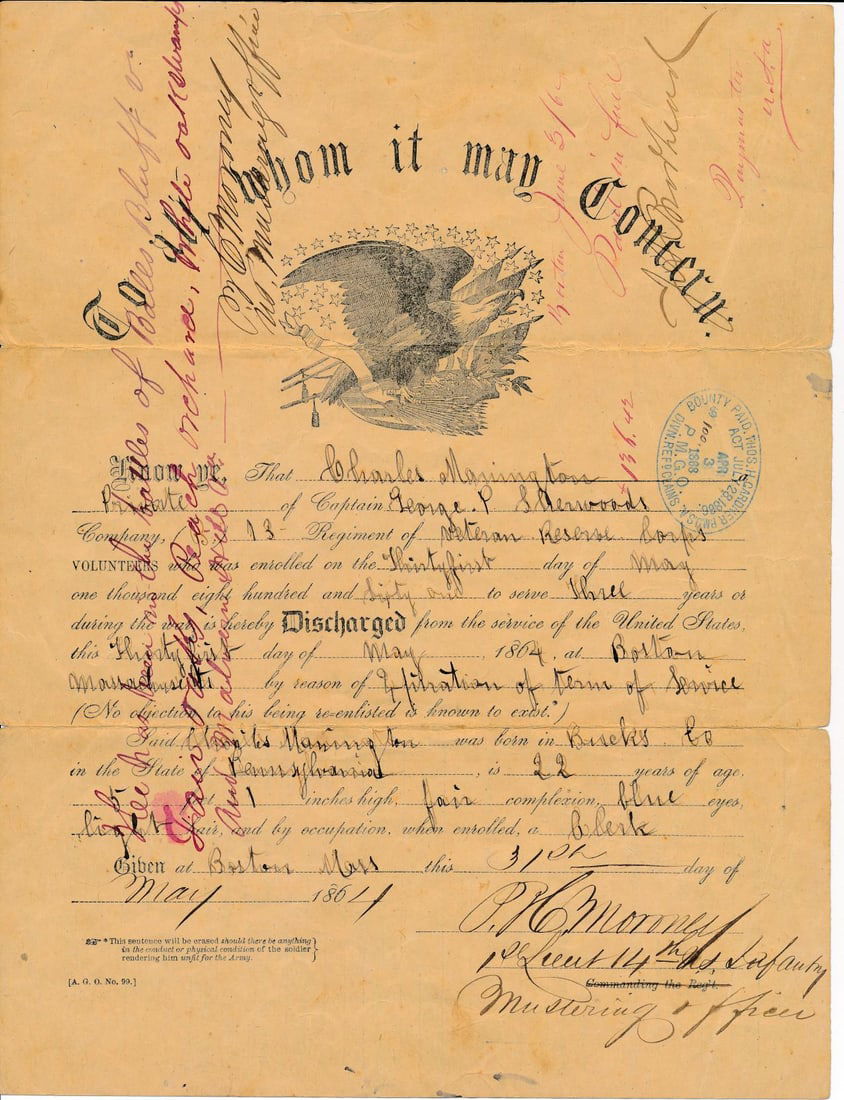 To all whom it may Concern.
Know ye, That Charles Manington
Private of Captain George P Sherwoods
Company, 13 Regiment of Veteran Reserve Corps
VOLUNTEERS who was enrolled on the Thirtyfirst day of May
one thousand eight hundred and Sixty one to serve Three years or
during the war, is hereby Discharged from the service of the United States,
this Thirtyfirst day of May, 1864, at Boston
Massachusetts by reason of Expiration of term of Service
(No objection to his being re-enlisted is known to exist.*)
Said Charles Manington was born in Bucks Co
in the State of Pennsylvania, is 22 years of age,
5 feet 1 inches high, fair complexion, blue eyes,
light hair, and by occupation, when enrolled, a Clerk
Given at Boston Mass this 31st day of
May 1864
P. H. Moroney
1st Lieut 14th U.S. Infantry
Commanding the Reg't.
Mustering officer
* This sentence will be erased should there be anything
in the conduct or physical condition of the soldier
rendering him unfit for the Army.
[A. G. O. No. 99.]
He has been in the battles of Balls Bluff Va
Peach orchard, White oak swamp
and Malvern Hill Va
P H Moroney
U.S. Mustering officer
Boston June 3/64
Paid in full
Paymaster
U.S.A
136.42
BOUNTY PAID, THOS. H. GARDNER P.M. U.S.A.
ACT JULY 28, 1866.
100
APR 3 1868
P. M. G. O.